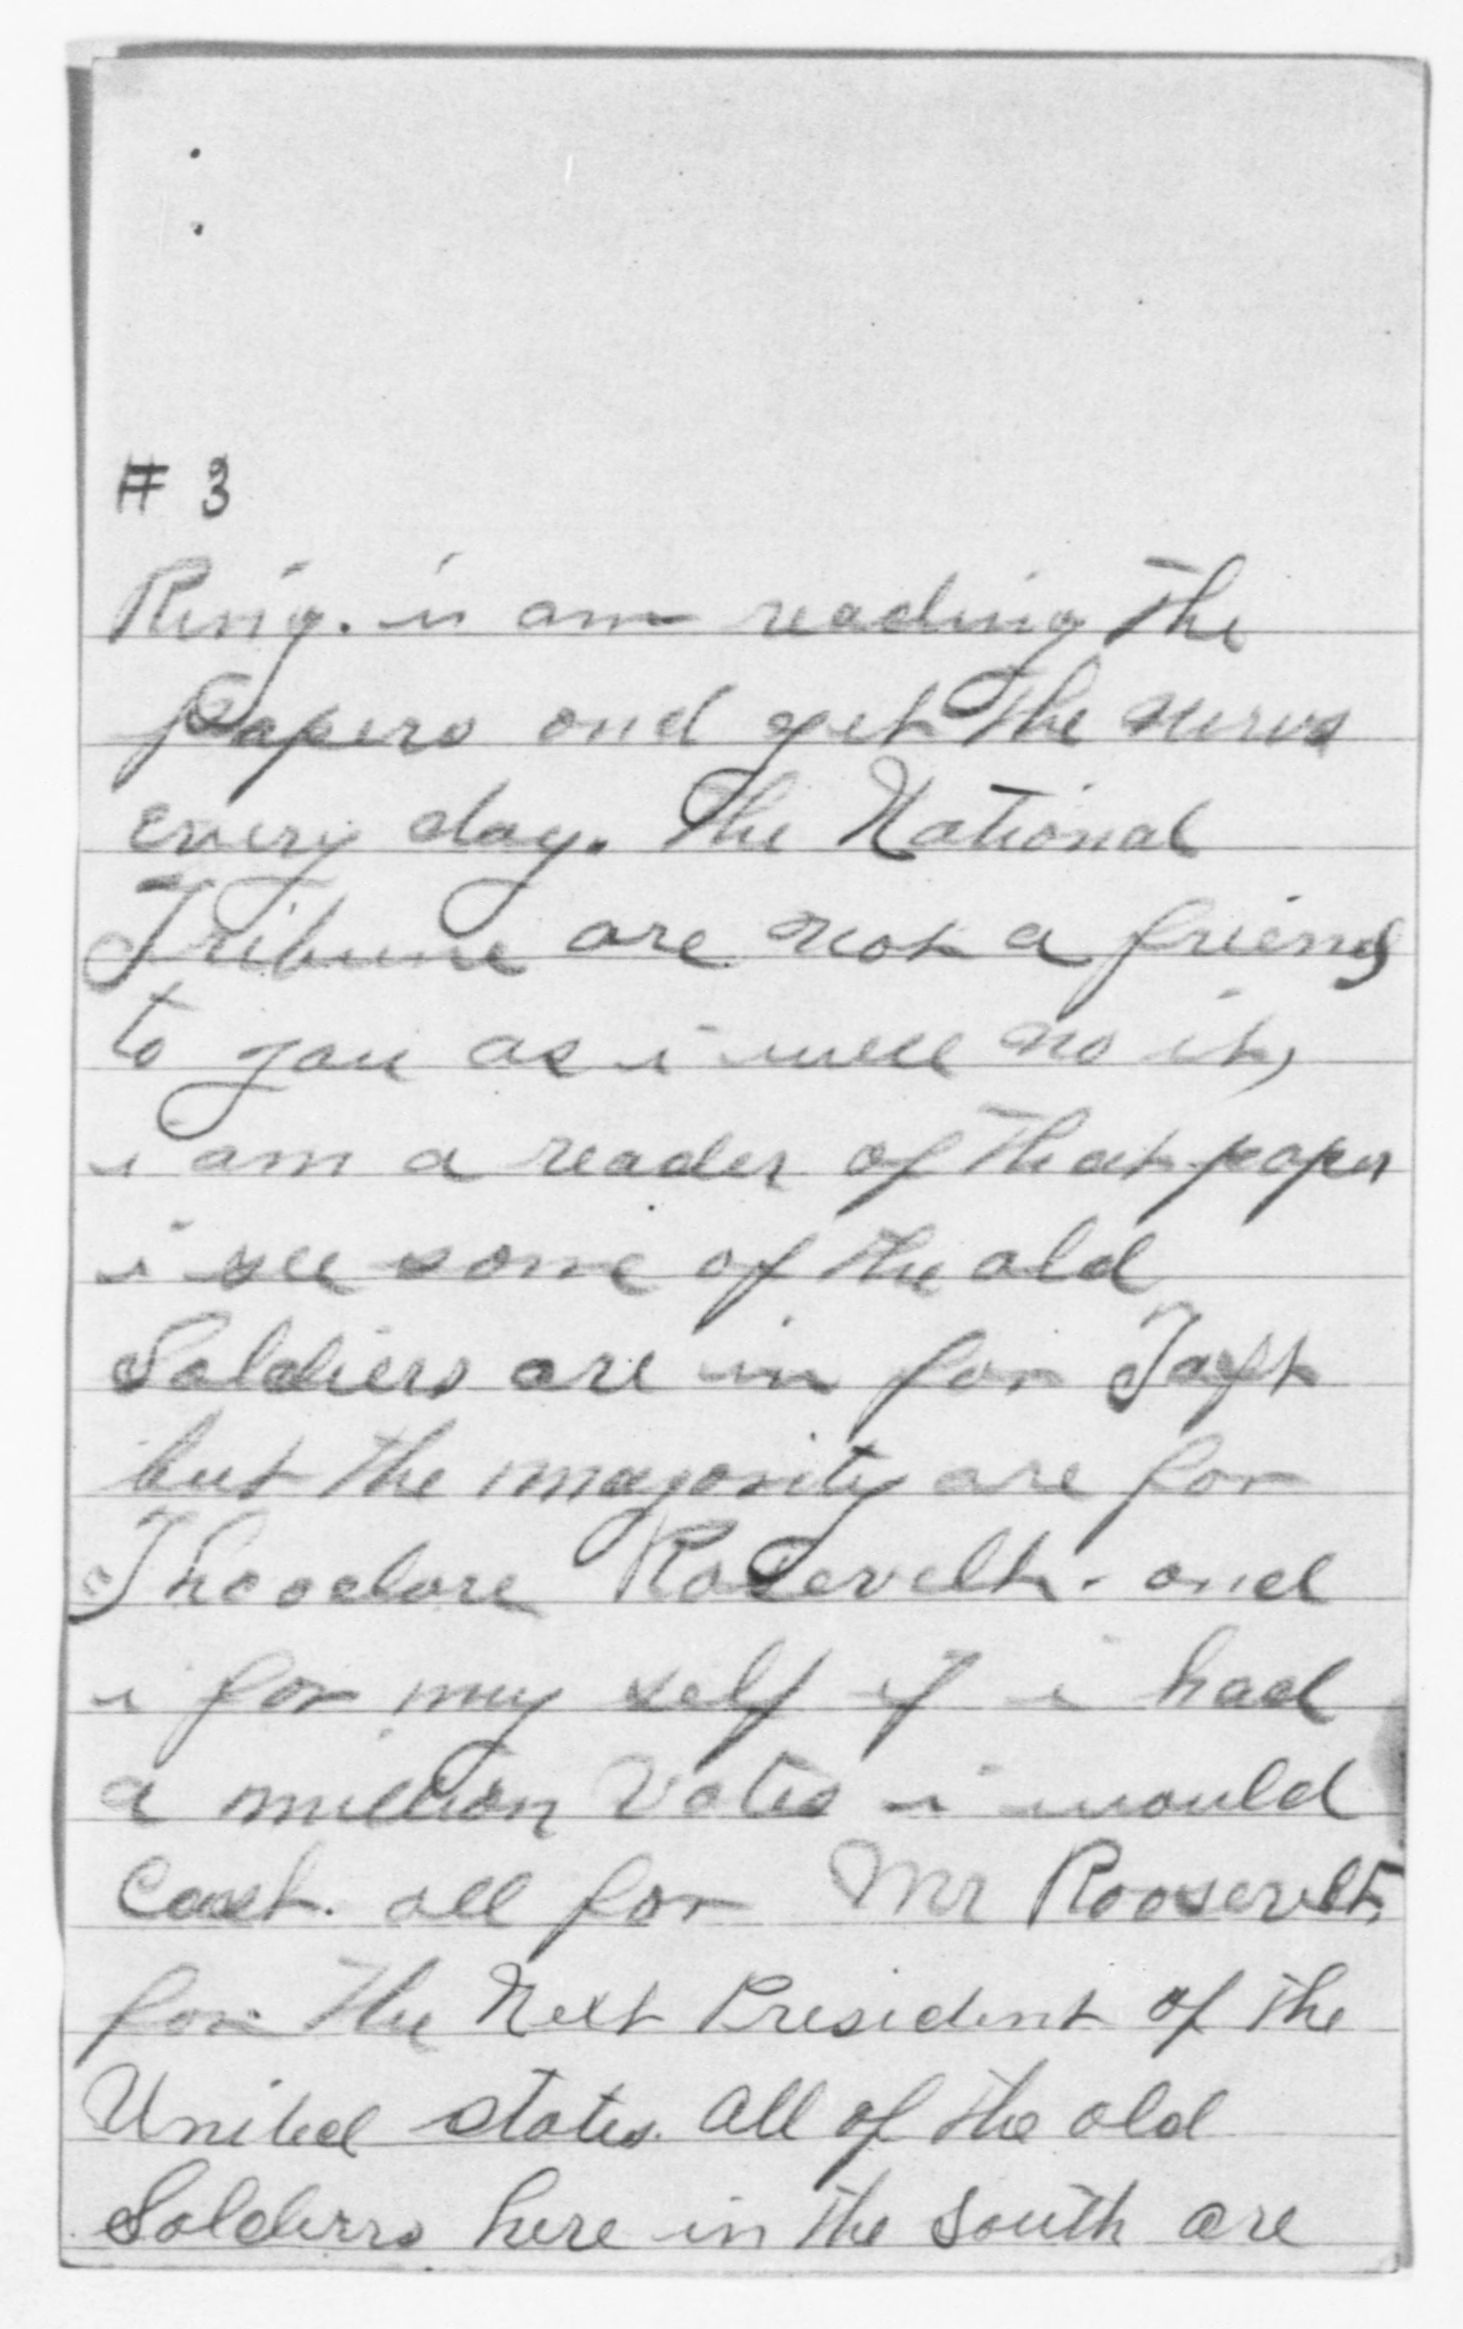 # 3
Ring. i am reading the
papers and get the news
every day. the National
Tribune are not a friend
to you as i well no it,
i am a reader of that paper
i see some of the old
Soldiers are in for Taft
but the majority are for
Theodore Rosevelt. and
i for my self if i had
a million Votes i would
Cast. all for Mr Roosevelt,
for the Next President of the
United states. all of the old
Soldiers here in the South are